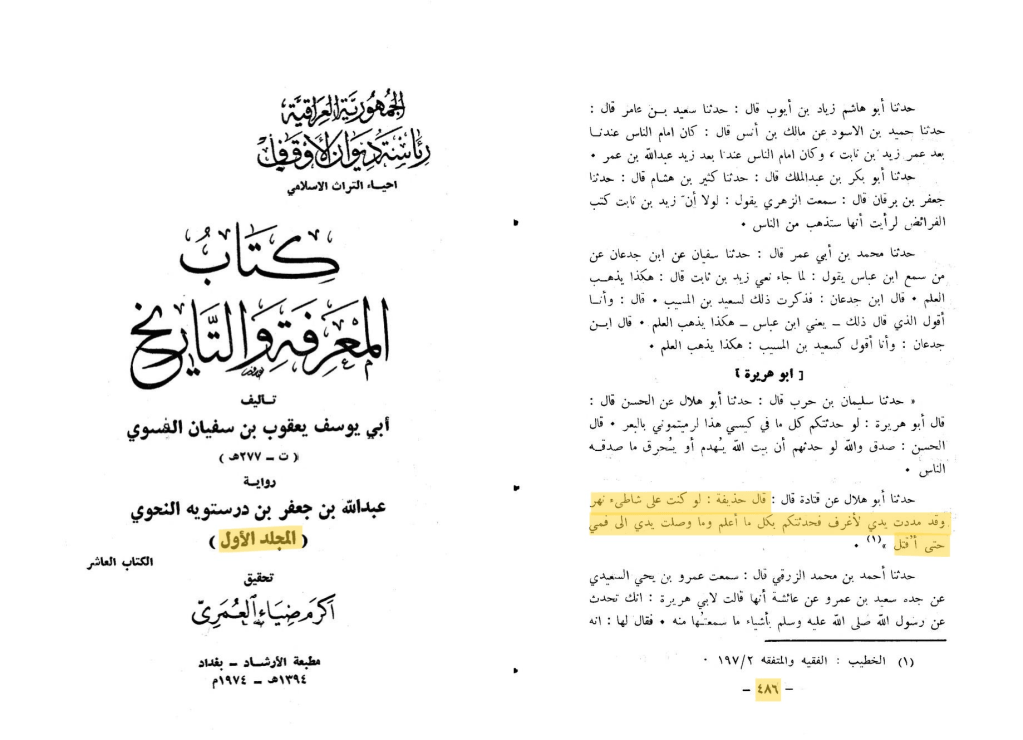 الجمهورية العراقية
رئاسة ديوان الأوقاف
احياء التراث الاسلامي
كتاب
المعرفة والتاريخ
تأليف
أبي يوسف يعقوب بن سفيان الفسوي
( ت ــ ٢٧٧هـ )
رواية
عبدالله بن جعفر بن درستويه النحوي
( المجلد الأول )
الكتاب العاشر
تحقيق
أكرم ضياء العمري
مطبعة الأرشاد ــ بغداد
١٣٩٤هـ ــ ١٩٧٤م
حدثنا أبو هاشم زياد بن أيوب قال : حدثنا سعيد بن عامر قال :
حدثنا حميد بن الاسود عن مالك بن أنس قال : كان امام الناس عندنا
بعد عمر زيد بن ثابت ، وكان امام الناس عندنا بعد زيد عبدالله بن عمر ٠
حدثنا أبو بكر بن عبدالملك قال : حدثنا كثير بن هشام قال : حدثنا
جعفر بن برقان قال : سمعت الزهري يقول : لولا أنّ زيد بن ثابت كتب
الفرائض لرأيت أنها ستذهب من الناس ٠
حدثنا محمد بن أبي عمر قال : حدثنا سفيان عن ابن جدعان عن
من سمع ابن عباس يقول : لما جاء نعي زيد بن ثابت قال : هكذا يذهب
العلم ٠ قال ابن جدعان : فذكرت ذلك لسعيد بن المسيب ٠ قال : وأنا
أقول الذي قال ذلك ــ يعني ابن عباس ــ هكذا يذهب العلم ٠ قال ابن
جدعان : وأنا أقول كسعيد بن المسيب : هكذا يذهب العلم ٠
[ ابو هريرة ]
« حدثنا سليمان بن حرب قال : حدثنا أبو هلال عن الحسن قال :
قال أبو هريرة : لو حدثتكم كل ما في كيسي هذا لرميتموني بالبعر ٠ قال
الحسن : صدق والله لو حدثهم أن بيت الله يُهدم أو يُحرق ما صدقه
الناس ٠
حدثنا أبو هلال عن قتادة قال : قال حذيفة : لو كنت على شاطىء نهر
وقد مددت يدي لأغرف فحدثتكم بكل ما أعلم وما وصلت يدي الى فمي
حتى أُقتل »(١) ٠
حدثنا أحمد بن محمد الزرقي قال : سمعت عمرو بن يحي السعيدي
عن جده سعيد بن عمرو عن عائشة أنها قالت لابي هريرة : انك تحدث
عن رسول الله صلى الله عليه وسلم بأشياء ما سمعتُها منه ٠ فقال لها : انه
(١) الخطيب : الفقيه والمتفقه ١٩٧/٢ ٠
ــ ٤٨٦ ــ